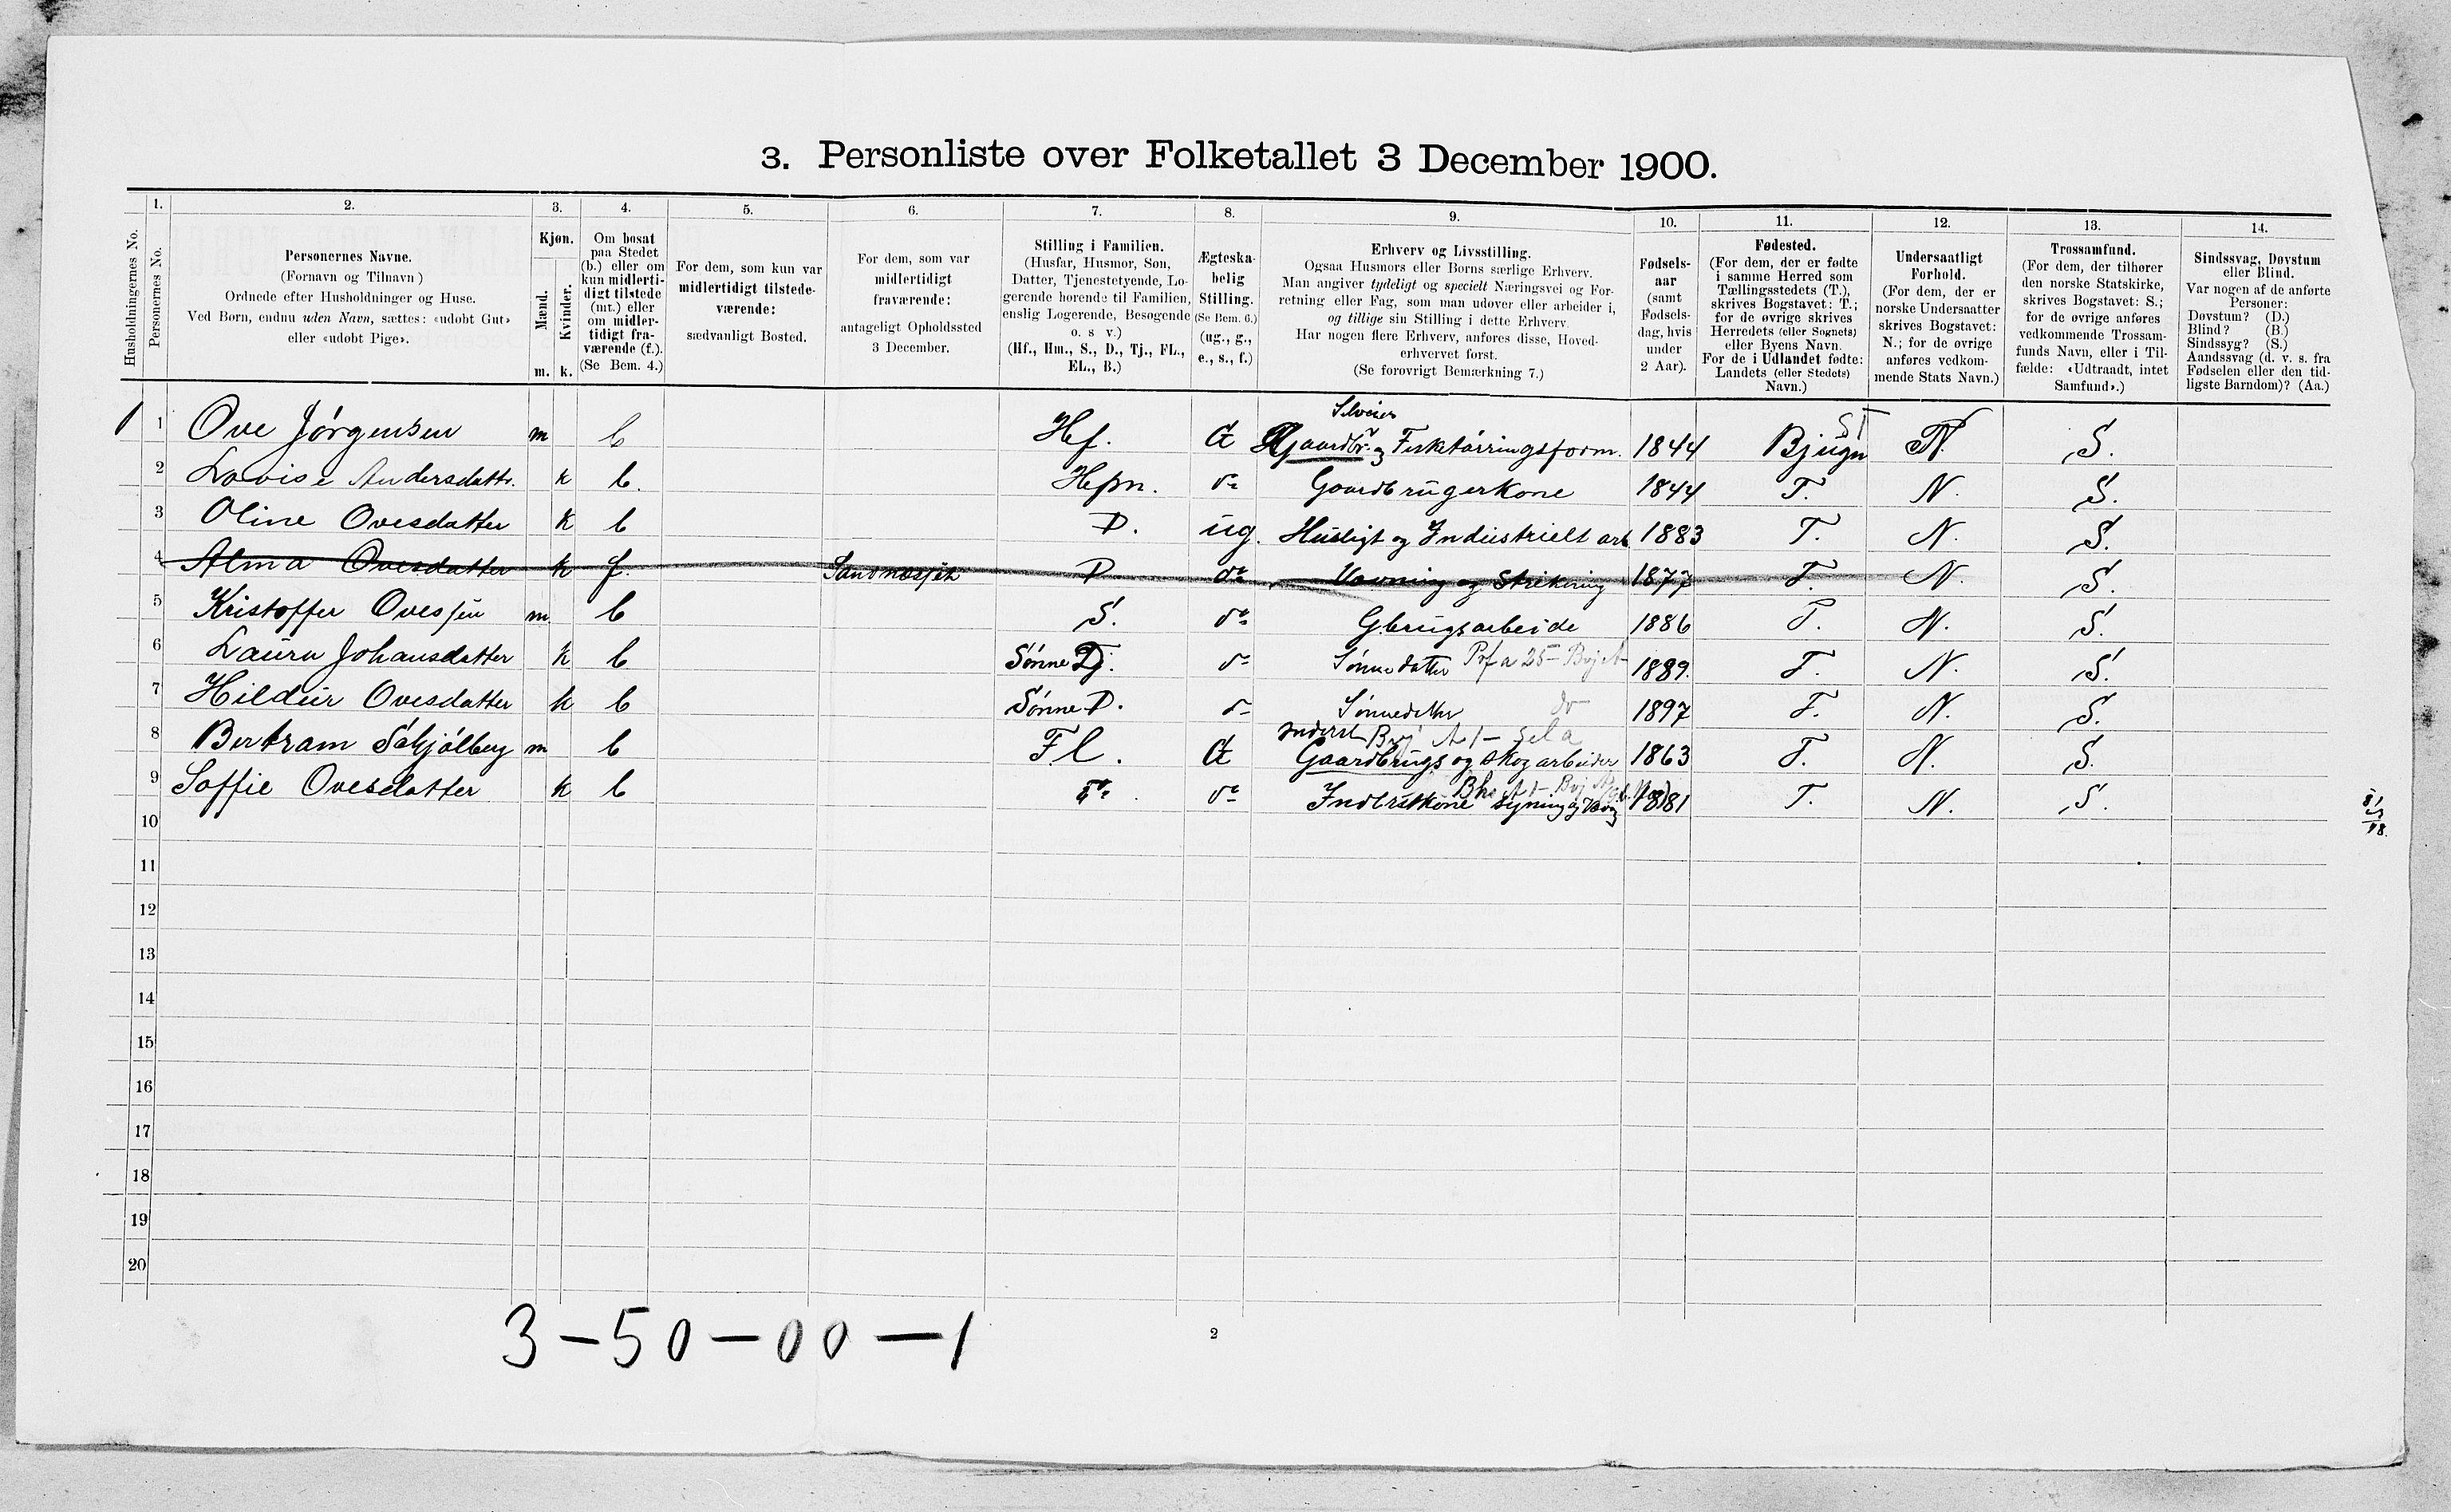 3. Personliste over Folketallet 3 December 1900.
Husholdningernes No.
1.
Personernes No.
2.
Personernes Navne.
(Fornavn og Tilnavn)
Ordnede efter Husholdninger og Huse.
Ved Børn, endnu uden Navn, sættes: «udøbt Gut»
eller «udøbt Pige».
3.
Kjøn.
Mænd.
Kvinder.
m. k.
4.
Om bosat
paa Stedet
(b.) eller om
kun midlerti-
digt tilstede
(mt.) eller
om midler-
tidigt fra-
værende (f.).
(Se Bem. 4.)
5.
For dem, som kun var
midlertidigt tilstede-
værende:
sædvanligt Bosted.
6.
For dem, som var
midlertidigt
fraværende:
antageligt Opholdssted
3 December.
7.
Stilling i Familien.
(Husfar, Husmor, Søn,
Datter, Tjenestetyende, Lo-
gerende hørende til Familien,
enslig Logerende, Besøgende
o. s v.)
(Hf., Hm., S., D., Tj., FL.,
EL., B.)
8.
Ægteska-
belig
Stilling.
(Se Bem. 6.)
(ug., g.,
e., s., f.)
9.
Erhverv og Livsstilling.
Ogsaa Husmors eller Børns særlige Erhverv.
Man angiver tydeligt og specielt Næringsvei og For-
retning eller Fag, som man udøver eller arbeider i,
og tillige sin Stilling i dette Erhverv.
Har nogen flere Erhverv, anføres disse, Hoved-
erhvervet først.
(Se forøvrigt Bemærkning 7.)
10.
Fødsels-
aar
(samt
Fødsels-
dag, hvis
under
2 Aar).
11.
Fødested.
(For dem, der er fødte
i samme Herred som
Tællingsstedets (T.),
skrives Bogstavet: T.;
for de øvrige skrives
Herredets (eller Sognets)
eller Byens Navn.
For de i Udlandet fødte:
Landets (eller Stedets)
Navn.)
12.
Undersaatligt
Forhold.
(For dem, der er
norske Undersaatter
skrives Bogstavet:
N.; for de øvrige
anføres vedkom-
mende Stats Navn.)
13.
Trossamfund.
(For dem, der tilhører
den norske Statskirke,
skrives Bogstavet: S.;
for de øvrige anføres
vedkommende Trossam-
funds Navn, eller i Til-
fælde: «Udtraadt, intet
Samfund».)
14.
Sindssvag, Døvstum
eller Blind.
Var nogen af de anførte
Personer:
Døvstum? (D.)
Blind? (B.)
Sindssyg? (S.)
Aandssvag (d. v. s. fra
Fødselen eller den tid-
ligste Barndom)? (Aa.)
Selveier ST
1 1 Ove Jörgensen m b Hf. G Gaardbr. og Fisketörringsform. 1844 Bjugn N. S.
2 Lovise Andersdattr. k b. Hm. do Gaardbrugerkone 1844 T. N. S.
3 Oline Ovesdatter k b D. ug. Husligt og Industrielt arb. 1883 T. N. S.
4 Alma Ovesdatter k f. Sandnæssjön D do Vævning og Strikning 1877 T. N. S.
5 Kristoffer Ovessen m. b S. do Gbrugsarbeide 1886 T. N. S.
6 Laura Johansdatter k b Sönne D. do Sönnedatter 1889. T. N. S.
7 Hildur Ovesdatter k b Sönne D. do Sönnedatter do 1897 T. N. S.
Inderst
8 Bertram Schjölberg m b FL. G Gaardbrugs og skogarbeider 1863 T. N. S.
9 Soffie Ovesdatter k b do do Inderstkone Syning og Vævng 1881 T. N. S.
10
11
12
13
14
15
16
17
18
19
20
3-50-00-1
2